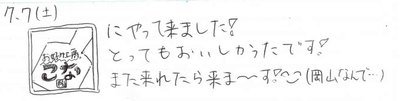 7.7(土)
お好み工房
こなⓂ
にやって来ました!
とってもおいしかったです!
また来れたら来ま〜す!^^(岡山なんで…)